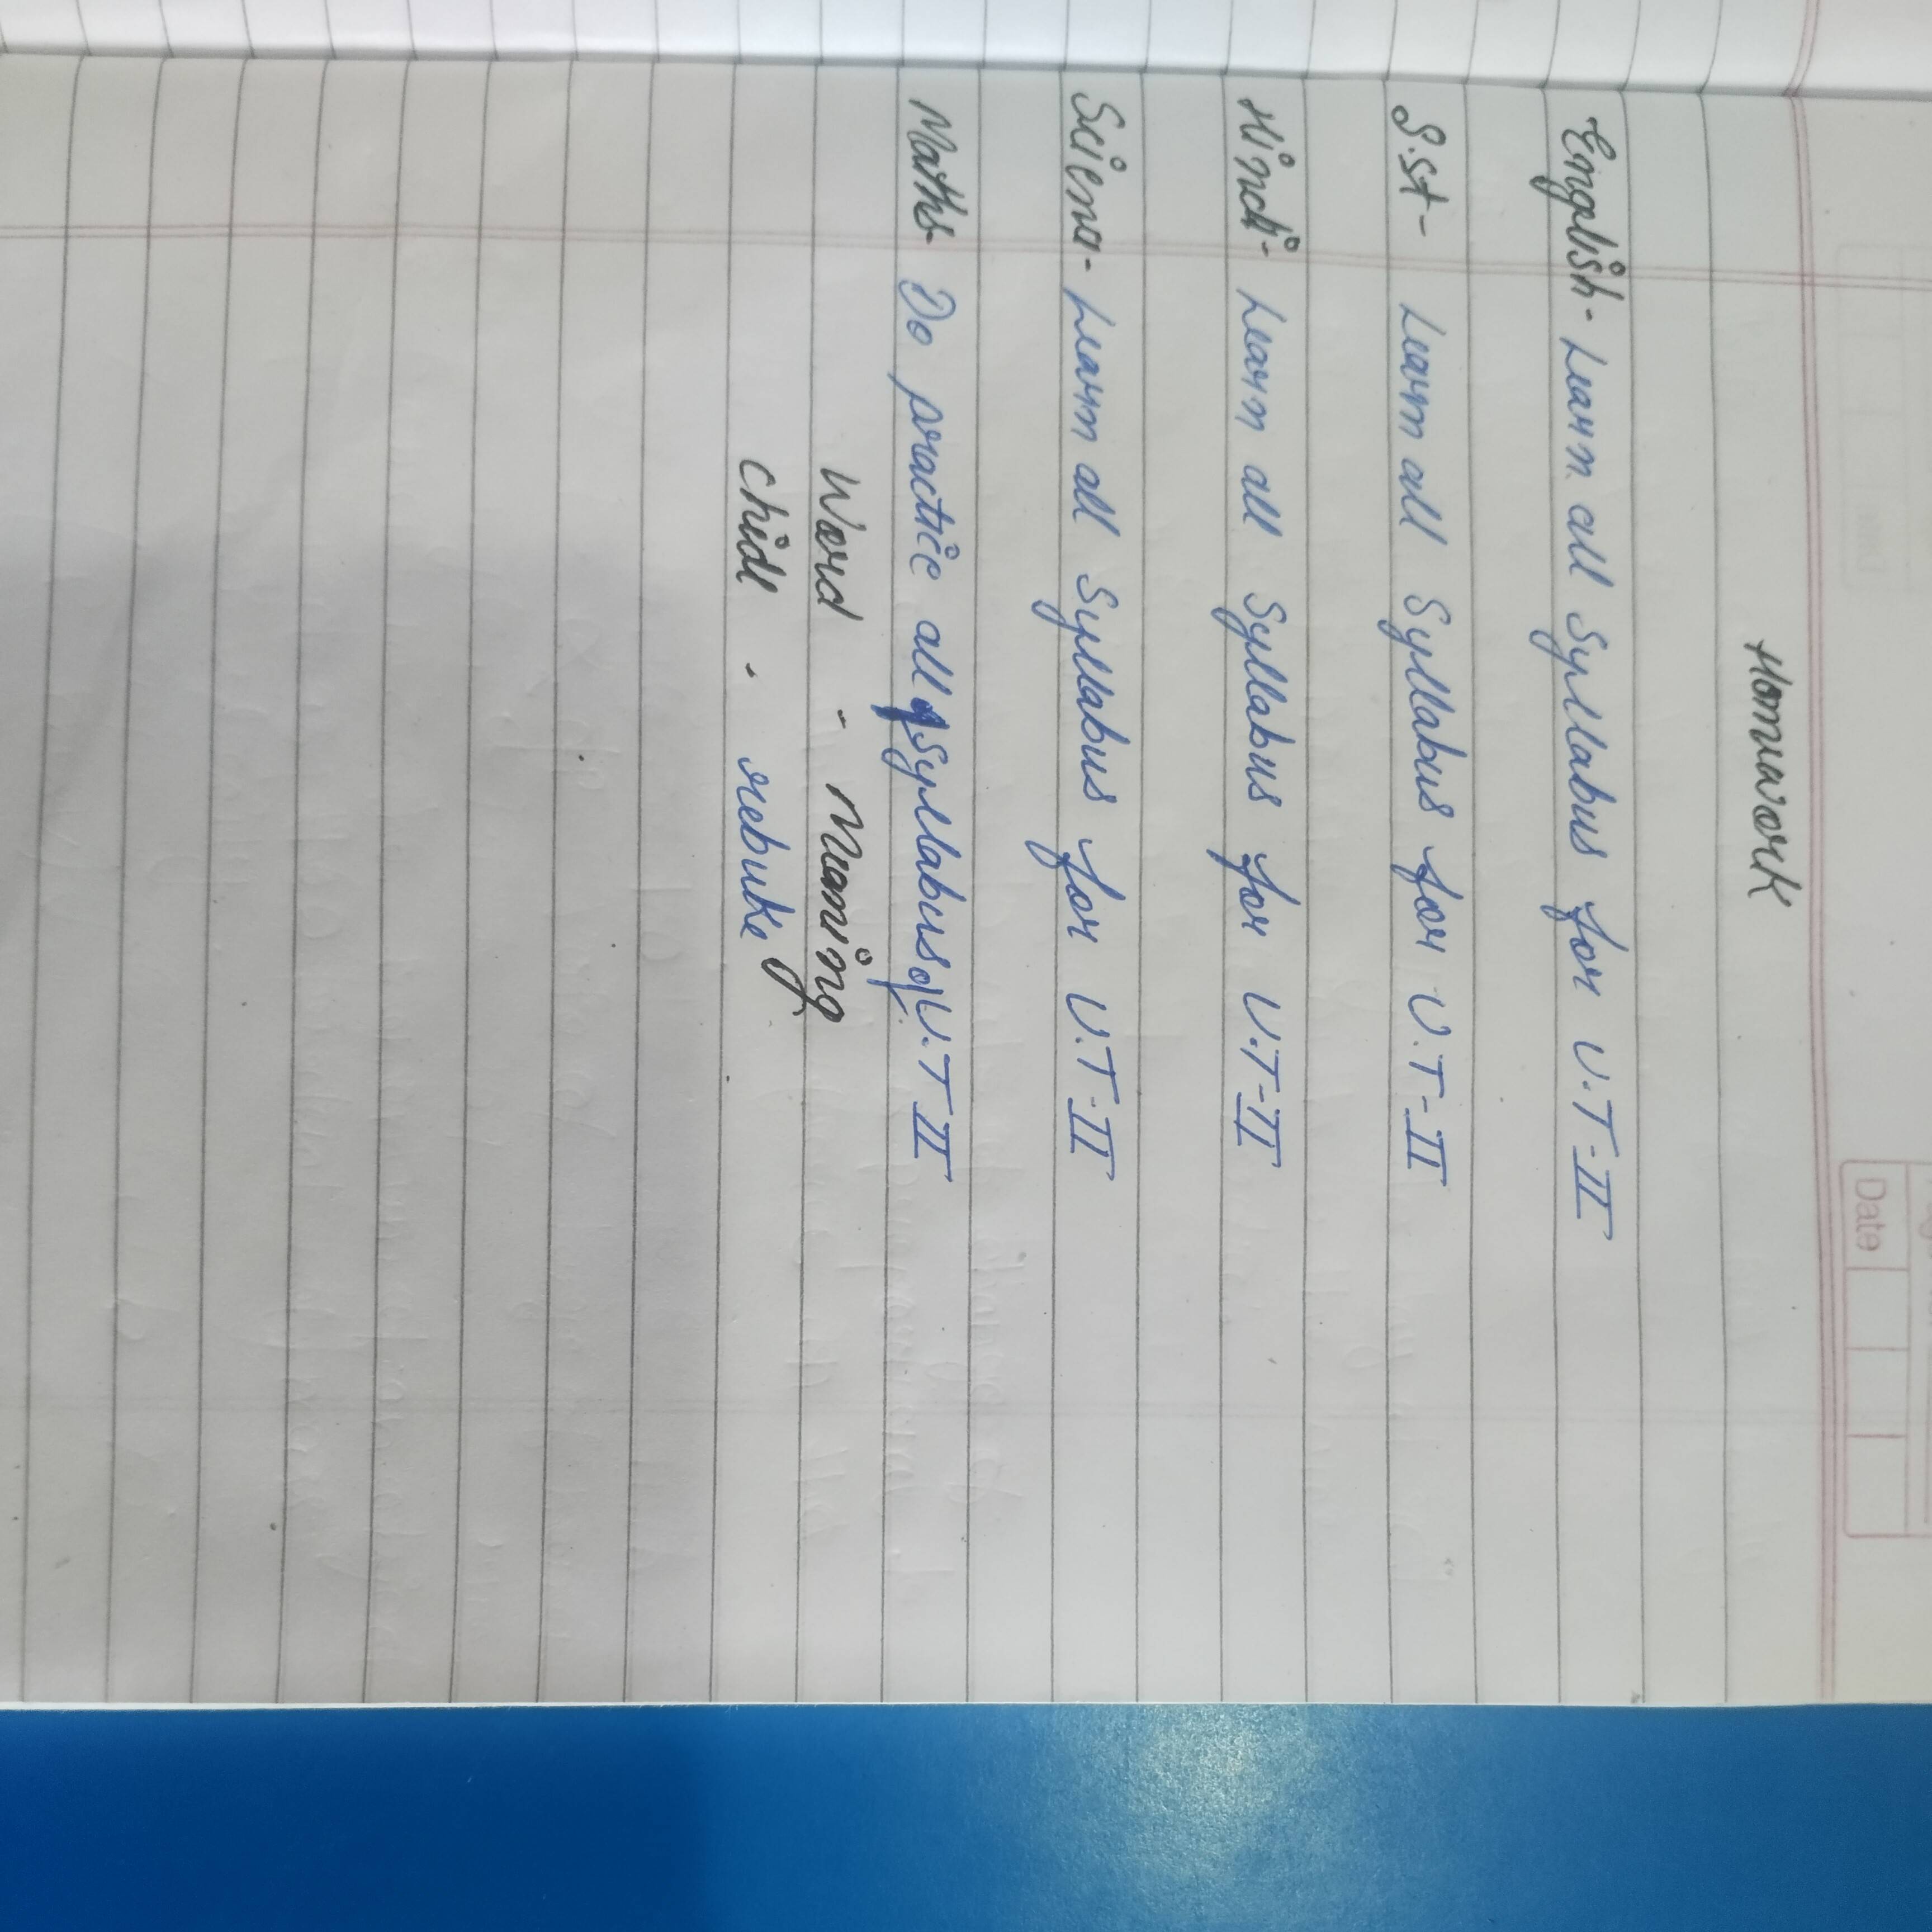 Date
Homework
English- Learn all Syllabus for U.T-II
S.st- Learn all Syllabus for U.T-II
Hindi- Learn all Syllabus for U.T-II
Science- Learn all Syllabus for U.T-II
Maths- Do practice all Syllabus of U.T II
Word - Meaning
Chide - rebuke